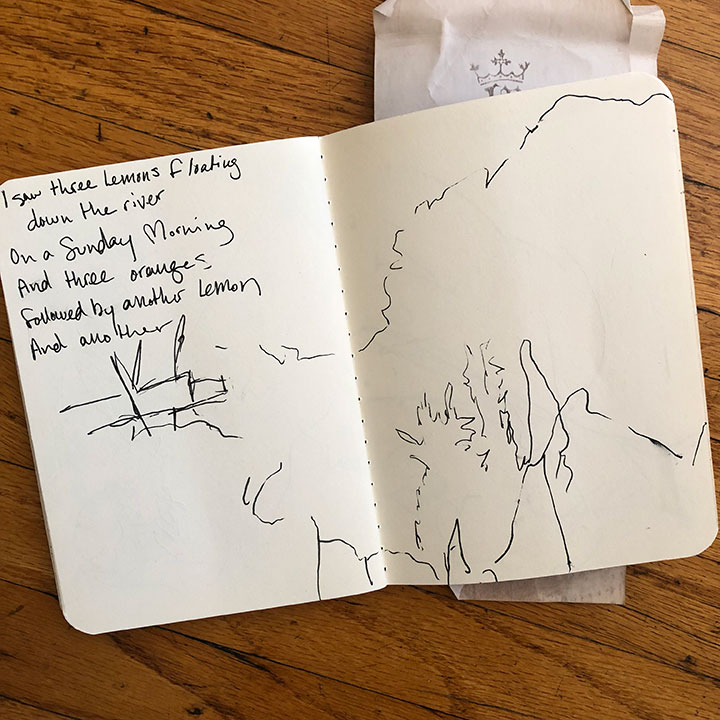 I saw three Lemons floating
down the river
On a Sunday Morning
And three oranges
followed by another Lemon
And another